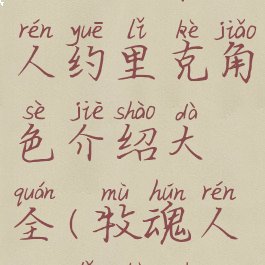 rén yuē lǐ kè jiǎo
人约里克角
sè jiē shào dà
色介绍大
quán mù hún rén
全(牧魂人